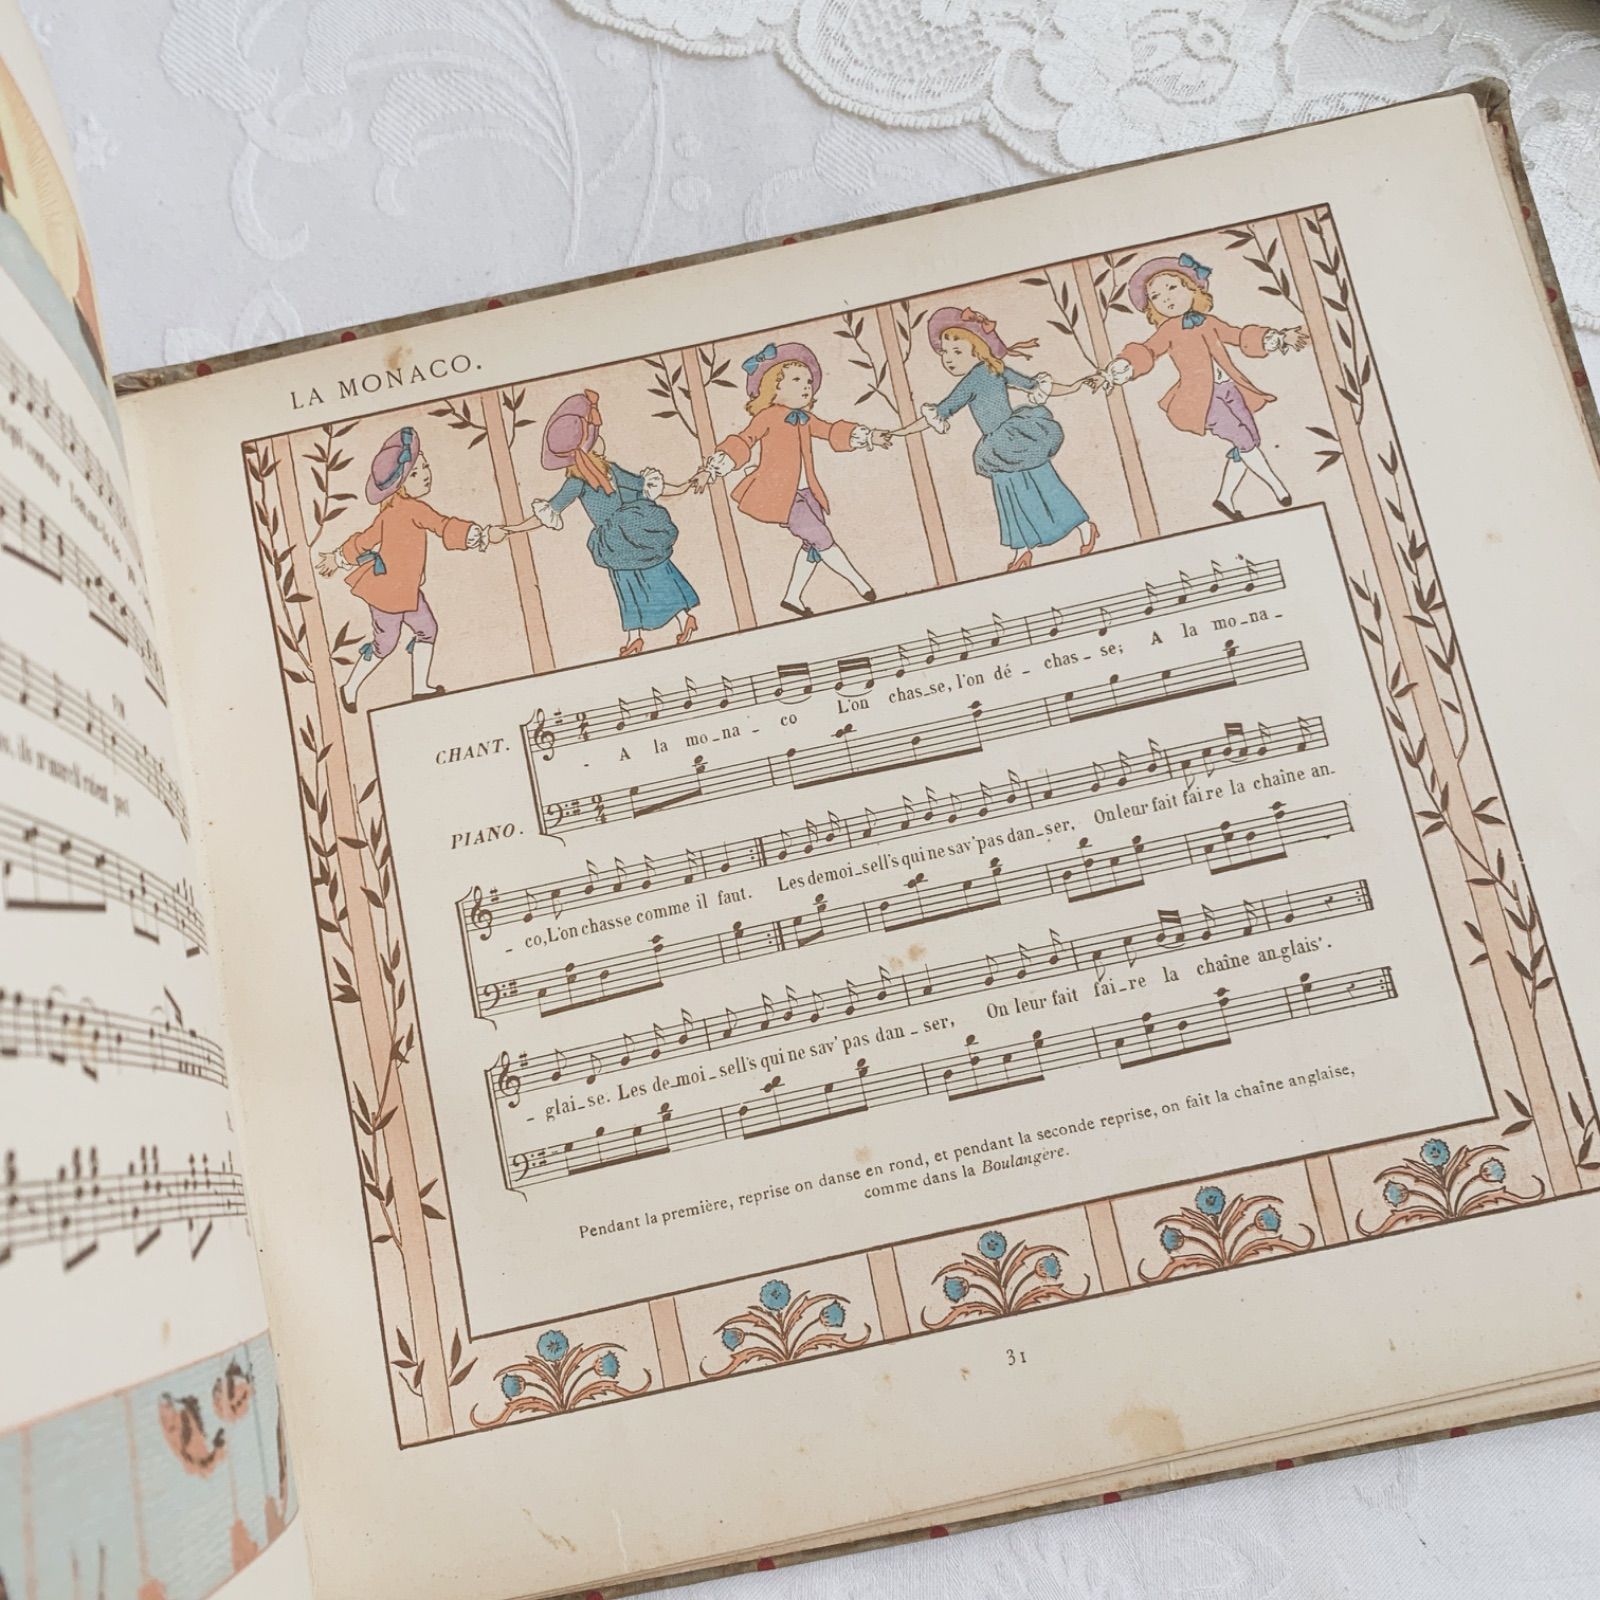 LA MONACO.
CHANT.
A la mo_na - co L'on chas_se, l'on dé - chas - se; A la mo_na_
PIANO.
- co, L'on chasse comme il faut. Les demoi_sell's qui ne sav' pas dan_ser, On leur fait faire la chaîne an_
- glai_se. Les de_moi_sell's qui ne sav' pas dan_ser, On leur fait fai_re la chaîne an_glais'.
Pendant la première, reprise on danse en rond, et pendant la seconde reprise, on fait la chaîne anglaise,
comme dans la Boulangère.
31